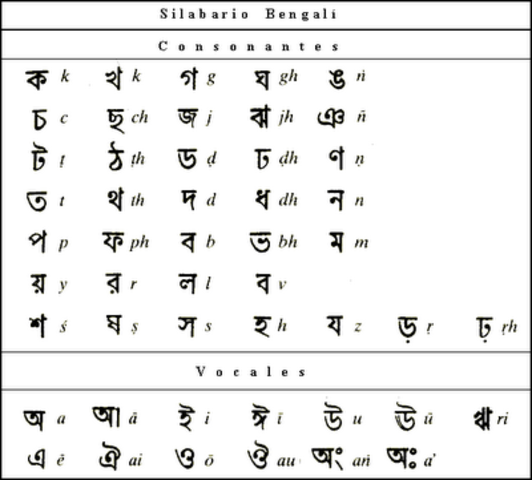 Silabario Bengalí
Consonantes
ক k খ k গ g ঘ gh ঙ ṅ
চ c ছ ch জ j ঝ jh ঞ ñ
ট ṭ ঠ ṭh ড ḍ ঢ ḍh ণ ṇ
ত t থ th দ d ধ dh ন n
প p ফ ph ব b ভ bh ম m
য় y র r ল l ব v
শ ś ষ ṣ স s হ h য z ড় ṛ ঢ় ṛh
Vocales
অ a আ ā ই i ঈ ī উ u ঊ ū ঋ ri
এ ē ঐ ai ও ō ঔ au অং aṅ অঃ a'